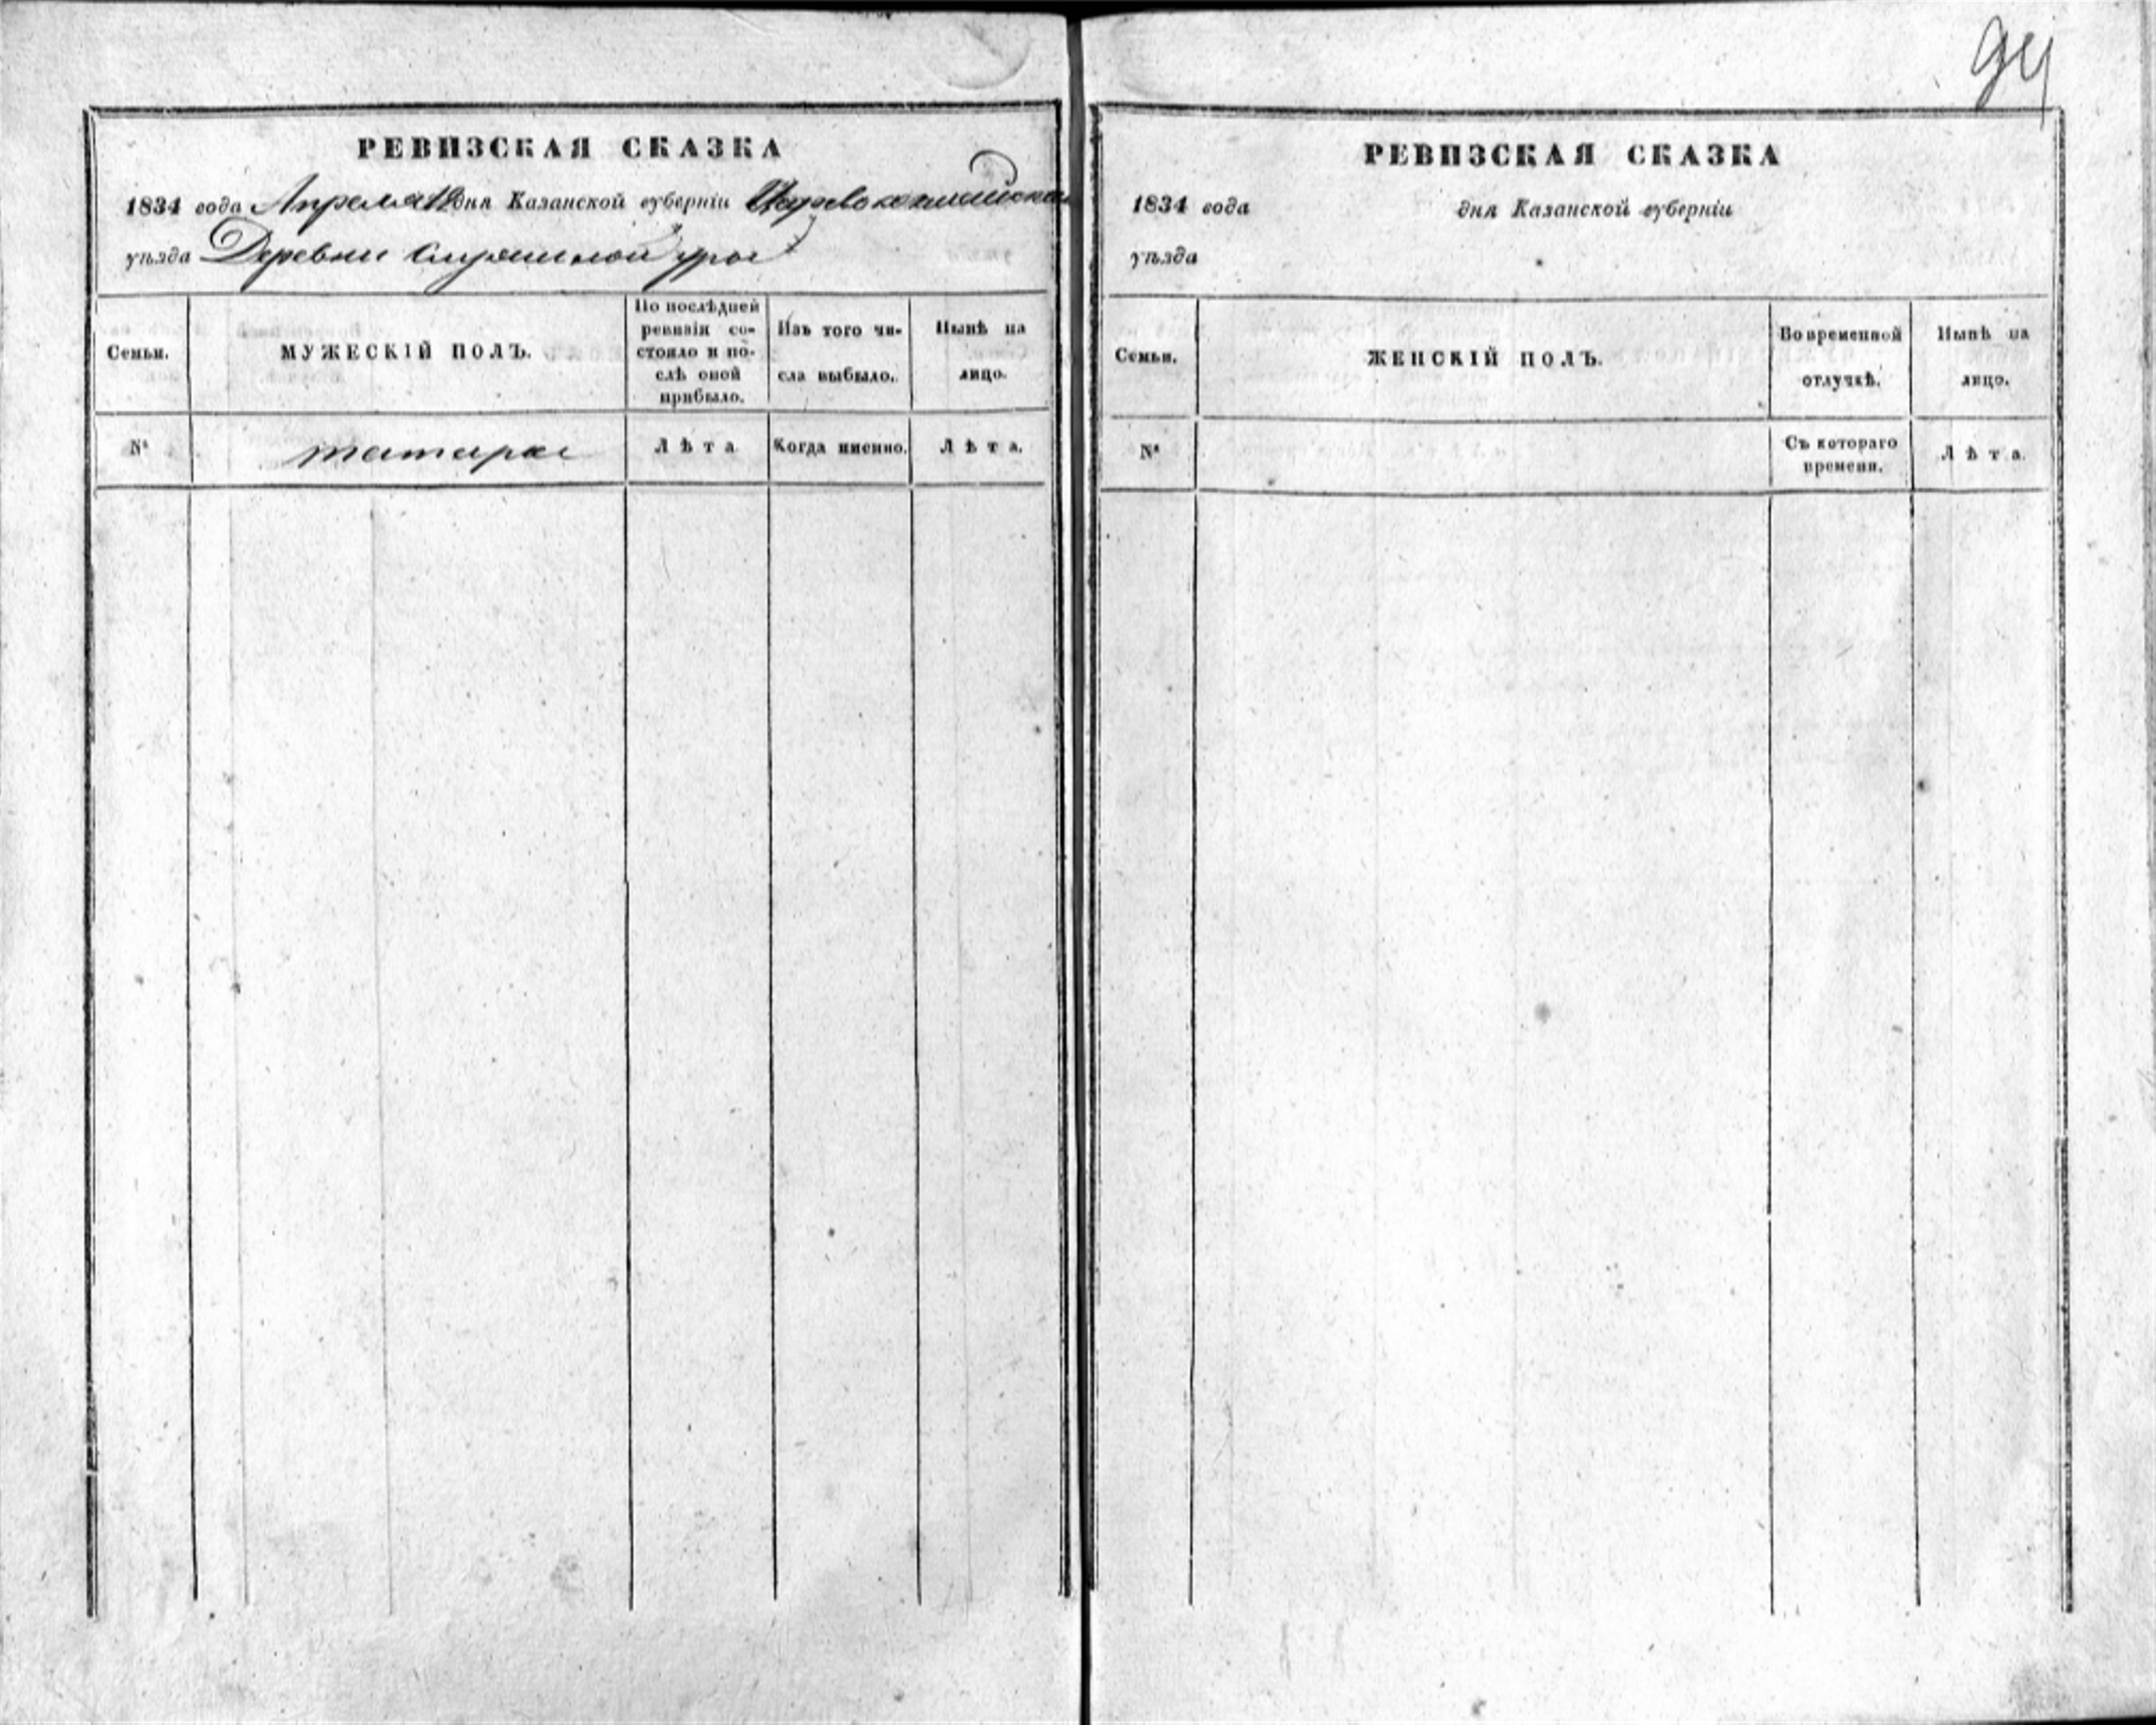 94
РЕВИЗСКАЯ СКАЗКА
1834 года Апреля 18 дня Казанской губерніи Царевококшайскаго
уѣзда Деревни
Семьи.
МУЖЕСКІЙ ПОЛЪ.
По послѣдней
ревизіи со-
стояло и по-
слѣ оной
прибыло.
Изъ того чи-
сла выбыло.
Нынѣ на
лицо.
№
татары
Лѣта
Когда именно.
Лѣта.
РЕВИЗСКАЯ СКАЗКА
1834 года дня Казанской губерніи
уѣзда
Семьи.
ЖЕНСКІЙ ПОЛЪ.
Во временной
отлучкѣ.
Нынѣ на
лицо.
№
Съ котораго
времени.
Лѣта.